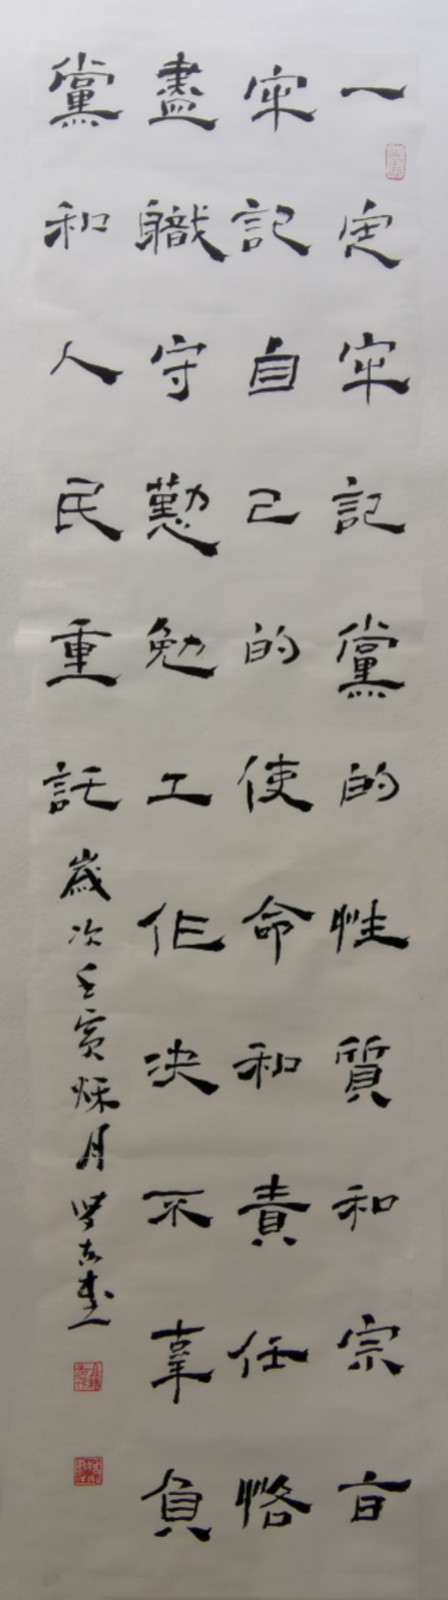 一定牢記黨的性質和宗旨
牢記自己的使命和責任恪
盡職守懃勉工作決不辜負
黨和人民重託
歲次壬寅秌月